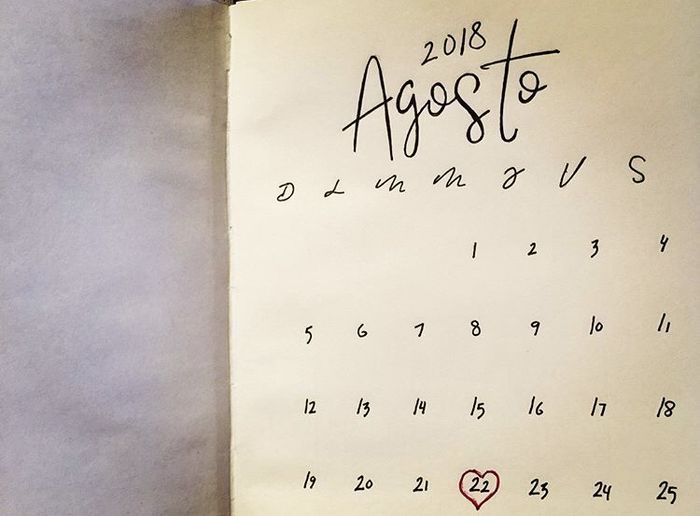 2018
Agosto
D L M M J V S
1 2 3 4
5 6 7 8 9 10 11
12 13 14 15 16 17 18
19 20 21 22 23 24 25